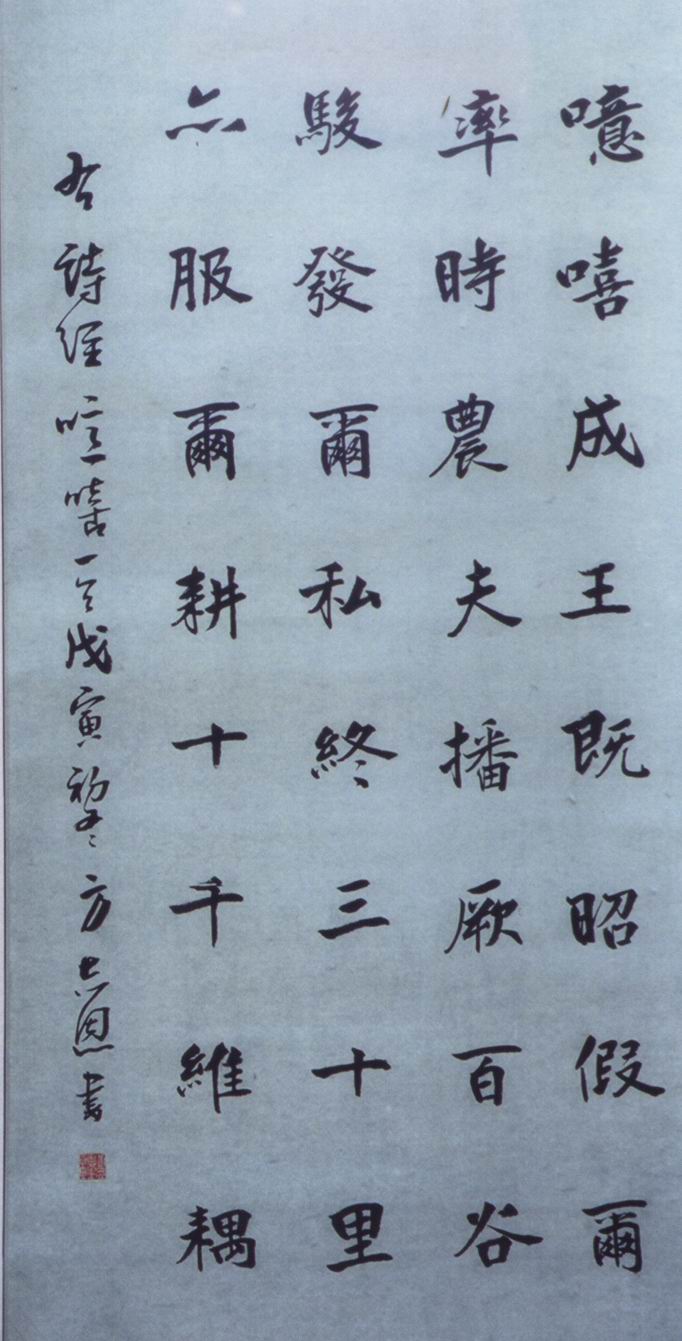 噫嘻成王既昭假爾
率時農夫播厥百谷
駿發爾私終三十里
亦服爾耕十千維耦
右詩經噫嘻一首戊寅初冬方志恩書